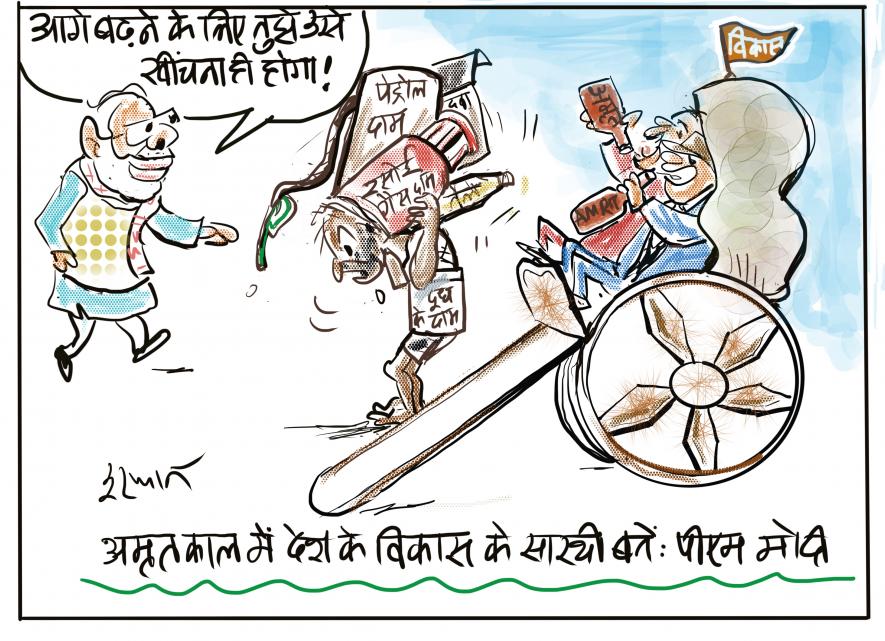 आगे बढ़ने के लिए तुझे उसे
खींचना ही होगा!
विकास
पेट्रोल
दाम
दवा
रसोई
गैस दाम
दूध
के दाम
AMRIT
इरफ़ान
अमृतकाल में देश के विकास के सारथी बनें: पीएम मोदी